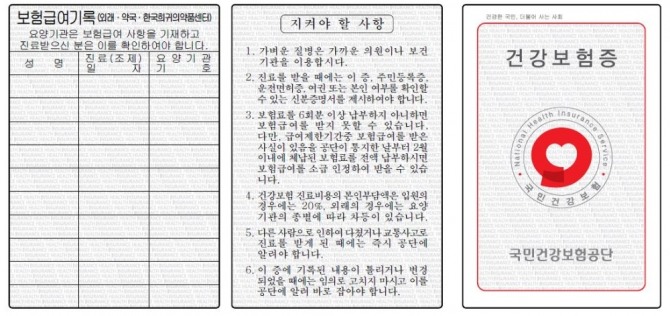 보험급여기록(외래 · 약국 · 한국희귀의약품센터)
요양기관은 보험급여 사항을 기재하고
진료받으신 분은 이를 확인하여야 합니다.
성 명
진료(조제)
일 자
요양기관
기 호
지켜야 할 사항
1. 가벼운 질병은 가까운 의원이나 보건
기관을 이용합시다.
2. 진료를 받을 때에는 이 증, 주민등록증,
운전면허증, 여권 또는 본인 여부를 확인할
수 있는 신분증명서를 제시하여야 합니다.
3. 보험료를 6회분 이상 납부하지 아니하면
보험급여를 받지 못할 수 있습니다.
다만, 급여제한기간중 보험급여를 받은
사실이 있음을 공단이 통지한 날부터 2월
이내에 체납된 보험료를 전액 납부하시면
보험급여를 소급 인정하여 받을 수 있습
니다.
4. 건강보험 진료비용의 본인부담액은 입원의
경우에는 20%, 외래의 경우에는 요양
기관의 종별에 따라 차등이 있습니다.
5. 다른 사람으로 인하여 다쳤거나 교통사고로
진료를 받게 된 때에는 즉시 공단에
알려야 합니다.
6. 이 증에 기록된 내용이 틀리거나 변경
되었을 때에는 임의로 고치지 마시고 이를
공단에 알려 바로 잡아야 합니다.
건강한 국민, 더불어 사는 사회
건강보험증
National Health Insurance Service
국민건강보험
국민건강보험공단